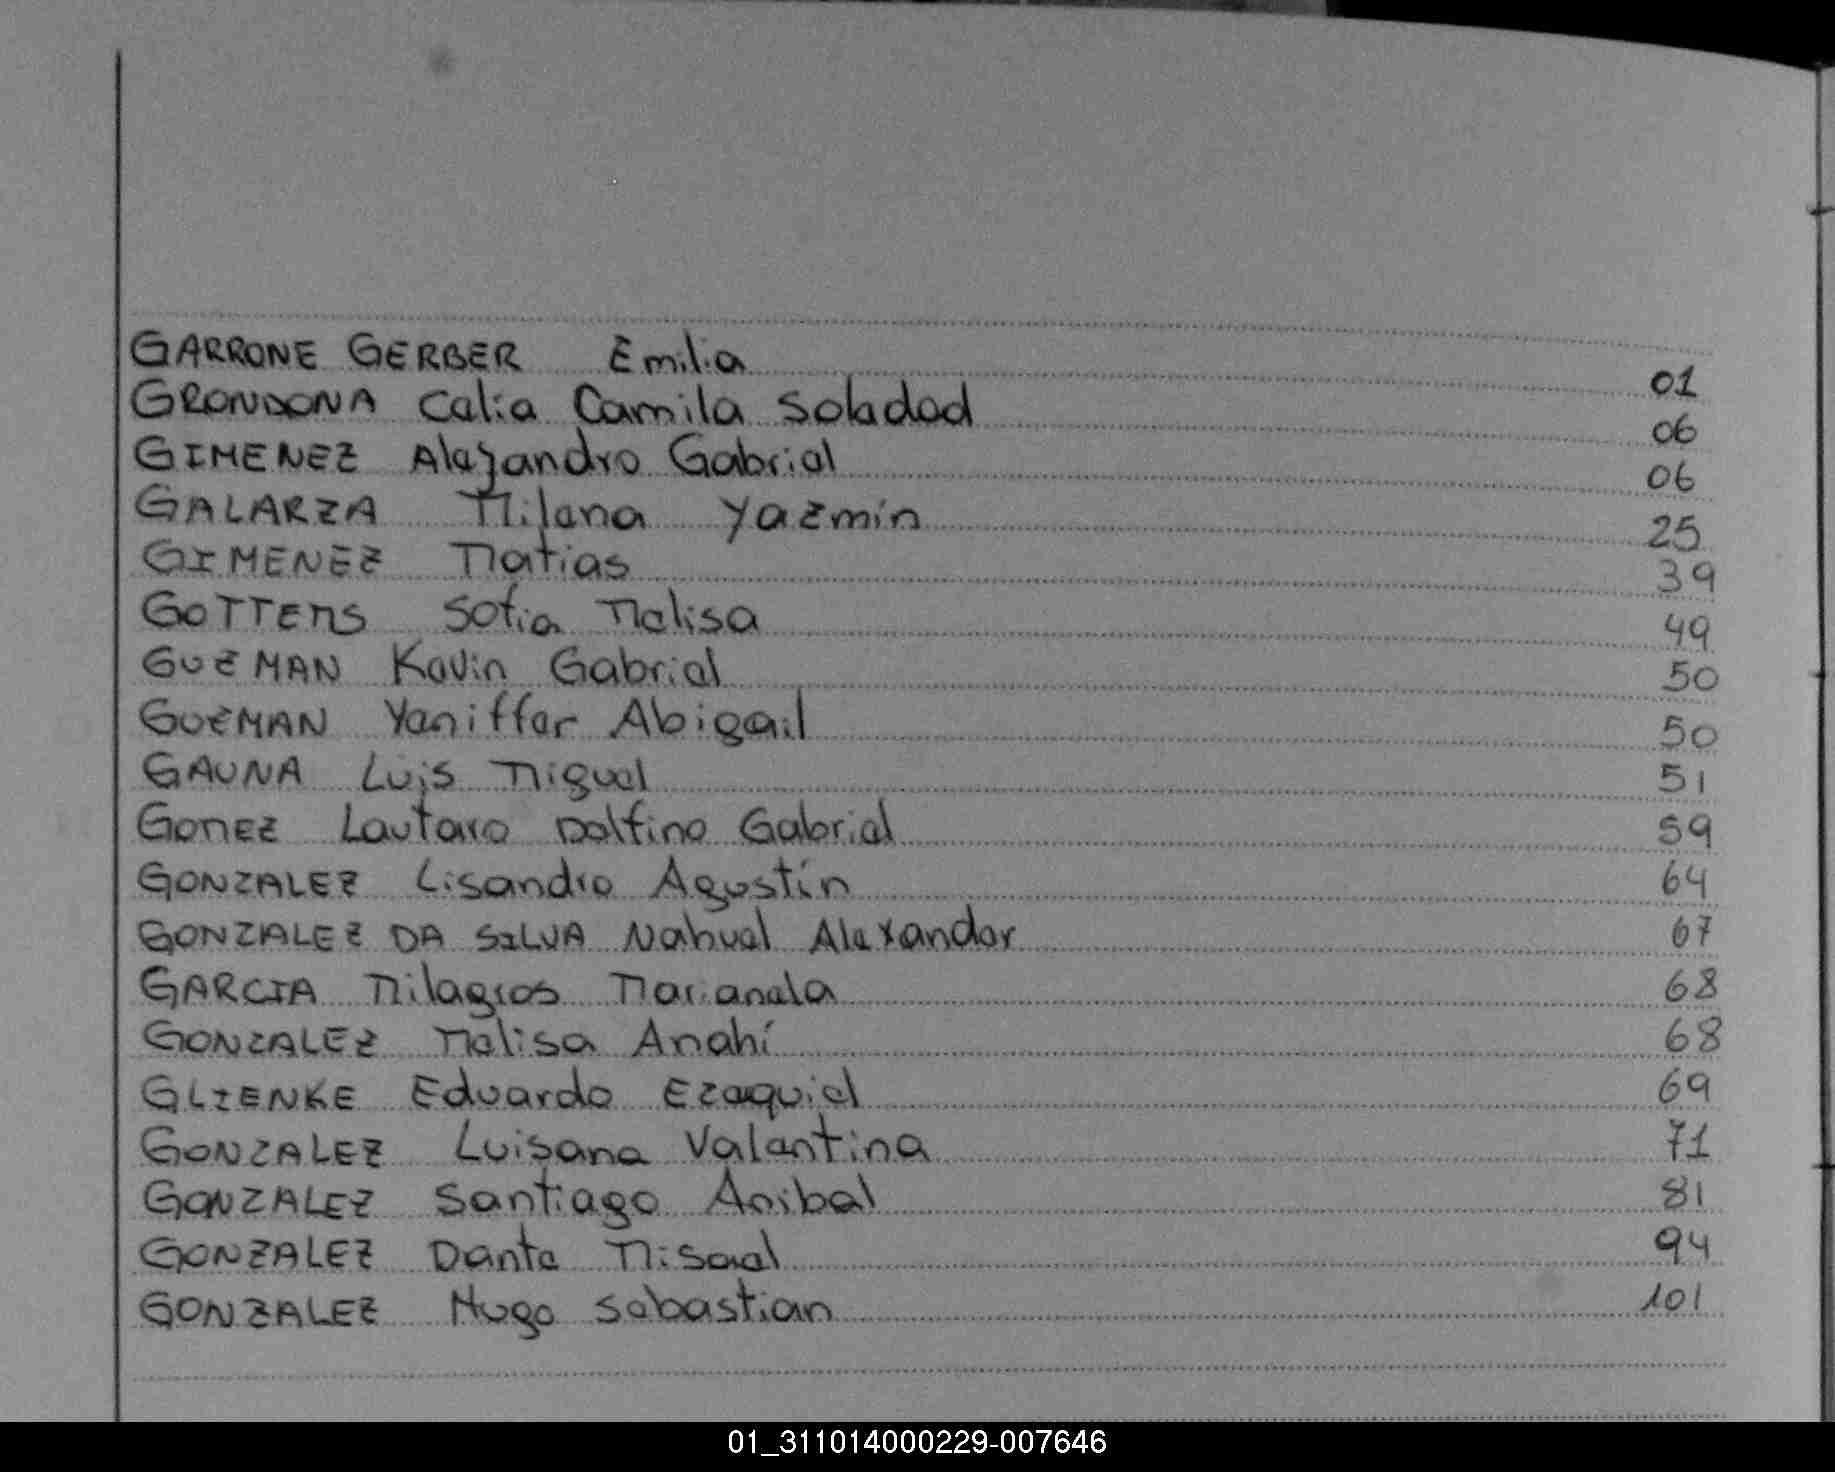 GARRONE GERBER Emilia 01
GRONDONA Celia Camila Soledad 06
GIMENEZ Alejandro Gabriel 06
GALARZA Milena Yazmín 25
GIMENEZ Matias 39
GOTTEMS Sofia Melisa 49
GUZMAN Kevin Gabriel 50
GUZMAN Yeniffer Abigail 50
GAUNA Luis Miguel 51
GOMEZ Lautaro Delfino Gabriel 59
GONZALEZ Lisandro Agustín 64
GONZALEZ DA SILVA Nahuel Alexander 67
GARCIA Milagros Marianela 68
GONZALEZ Melisa Anahí 68
GLIENKE Eduardo Ezequiel 69
GONZALEZ Luisana Valentina 71
GONZALEZ Santiago Anibal 81
GONZALEZ Dante Misael 94
GONZALEZ Hugo Sebastian 101
01_311014000229-007646